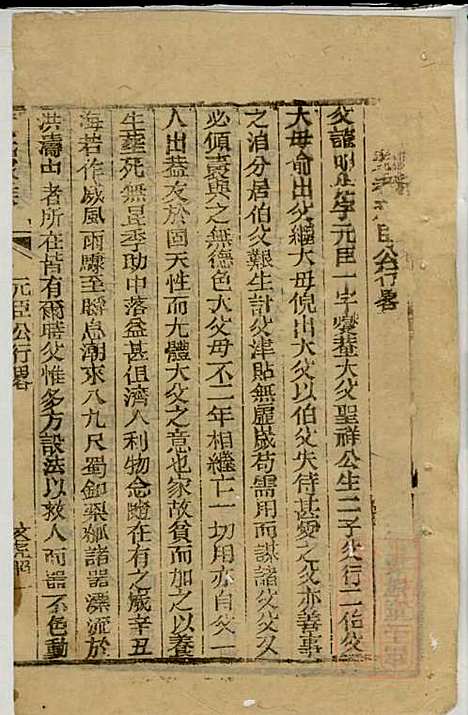 元臣公行畧
父諱明字元臣一字蘷菴大父聖祥公生二子父行二伯父
大母俞出父繼大母倪出大父以伯父失恃甚愛之父亦善事
之洎分居伯父艱生計父津貼無虛歲苟需用而謀諸父父又
必傾囊與之無德色大父母不二年相繼亡一切用亦自父一
人出蓋友於固天性而尤體大父之意也家故貧而加之以養
生葬死無呈季功中落益甚但濟人利物念隨在有之歲辛丑
海若作威風雨驟至瞬息潮來八九尺蜀鉚槩瓻諸器漂流於
洪濤中者所在皆有爾時父惟多方設法以救人而器不色動
元臣公行畧